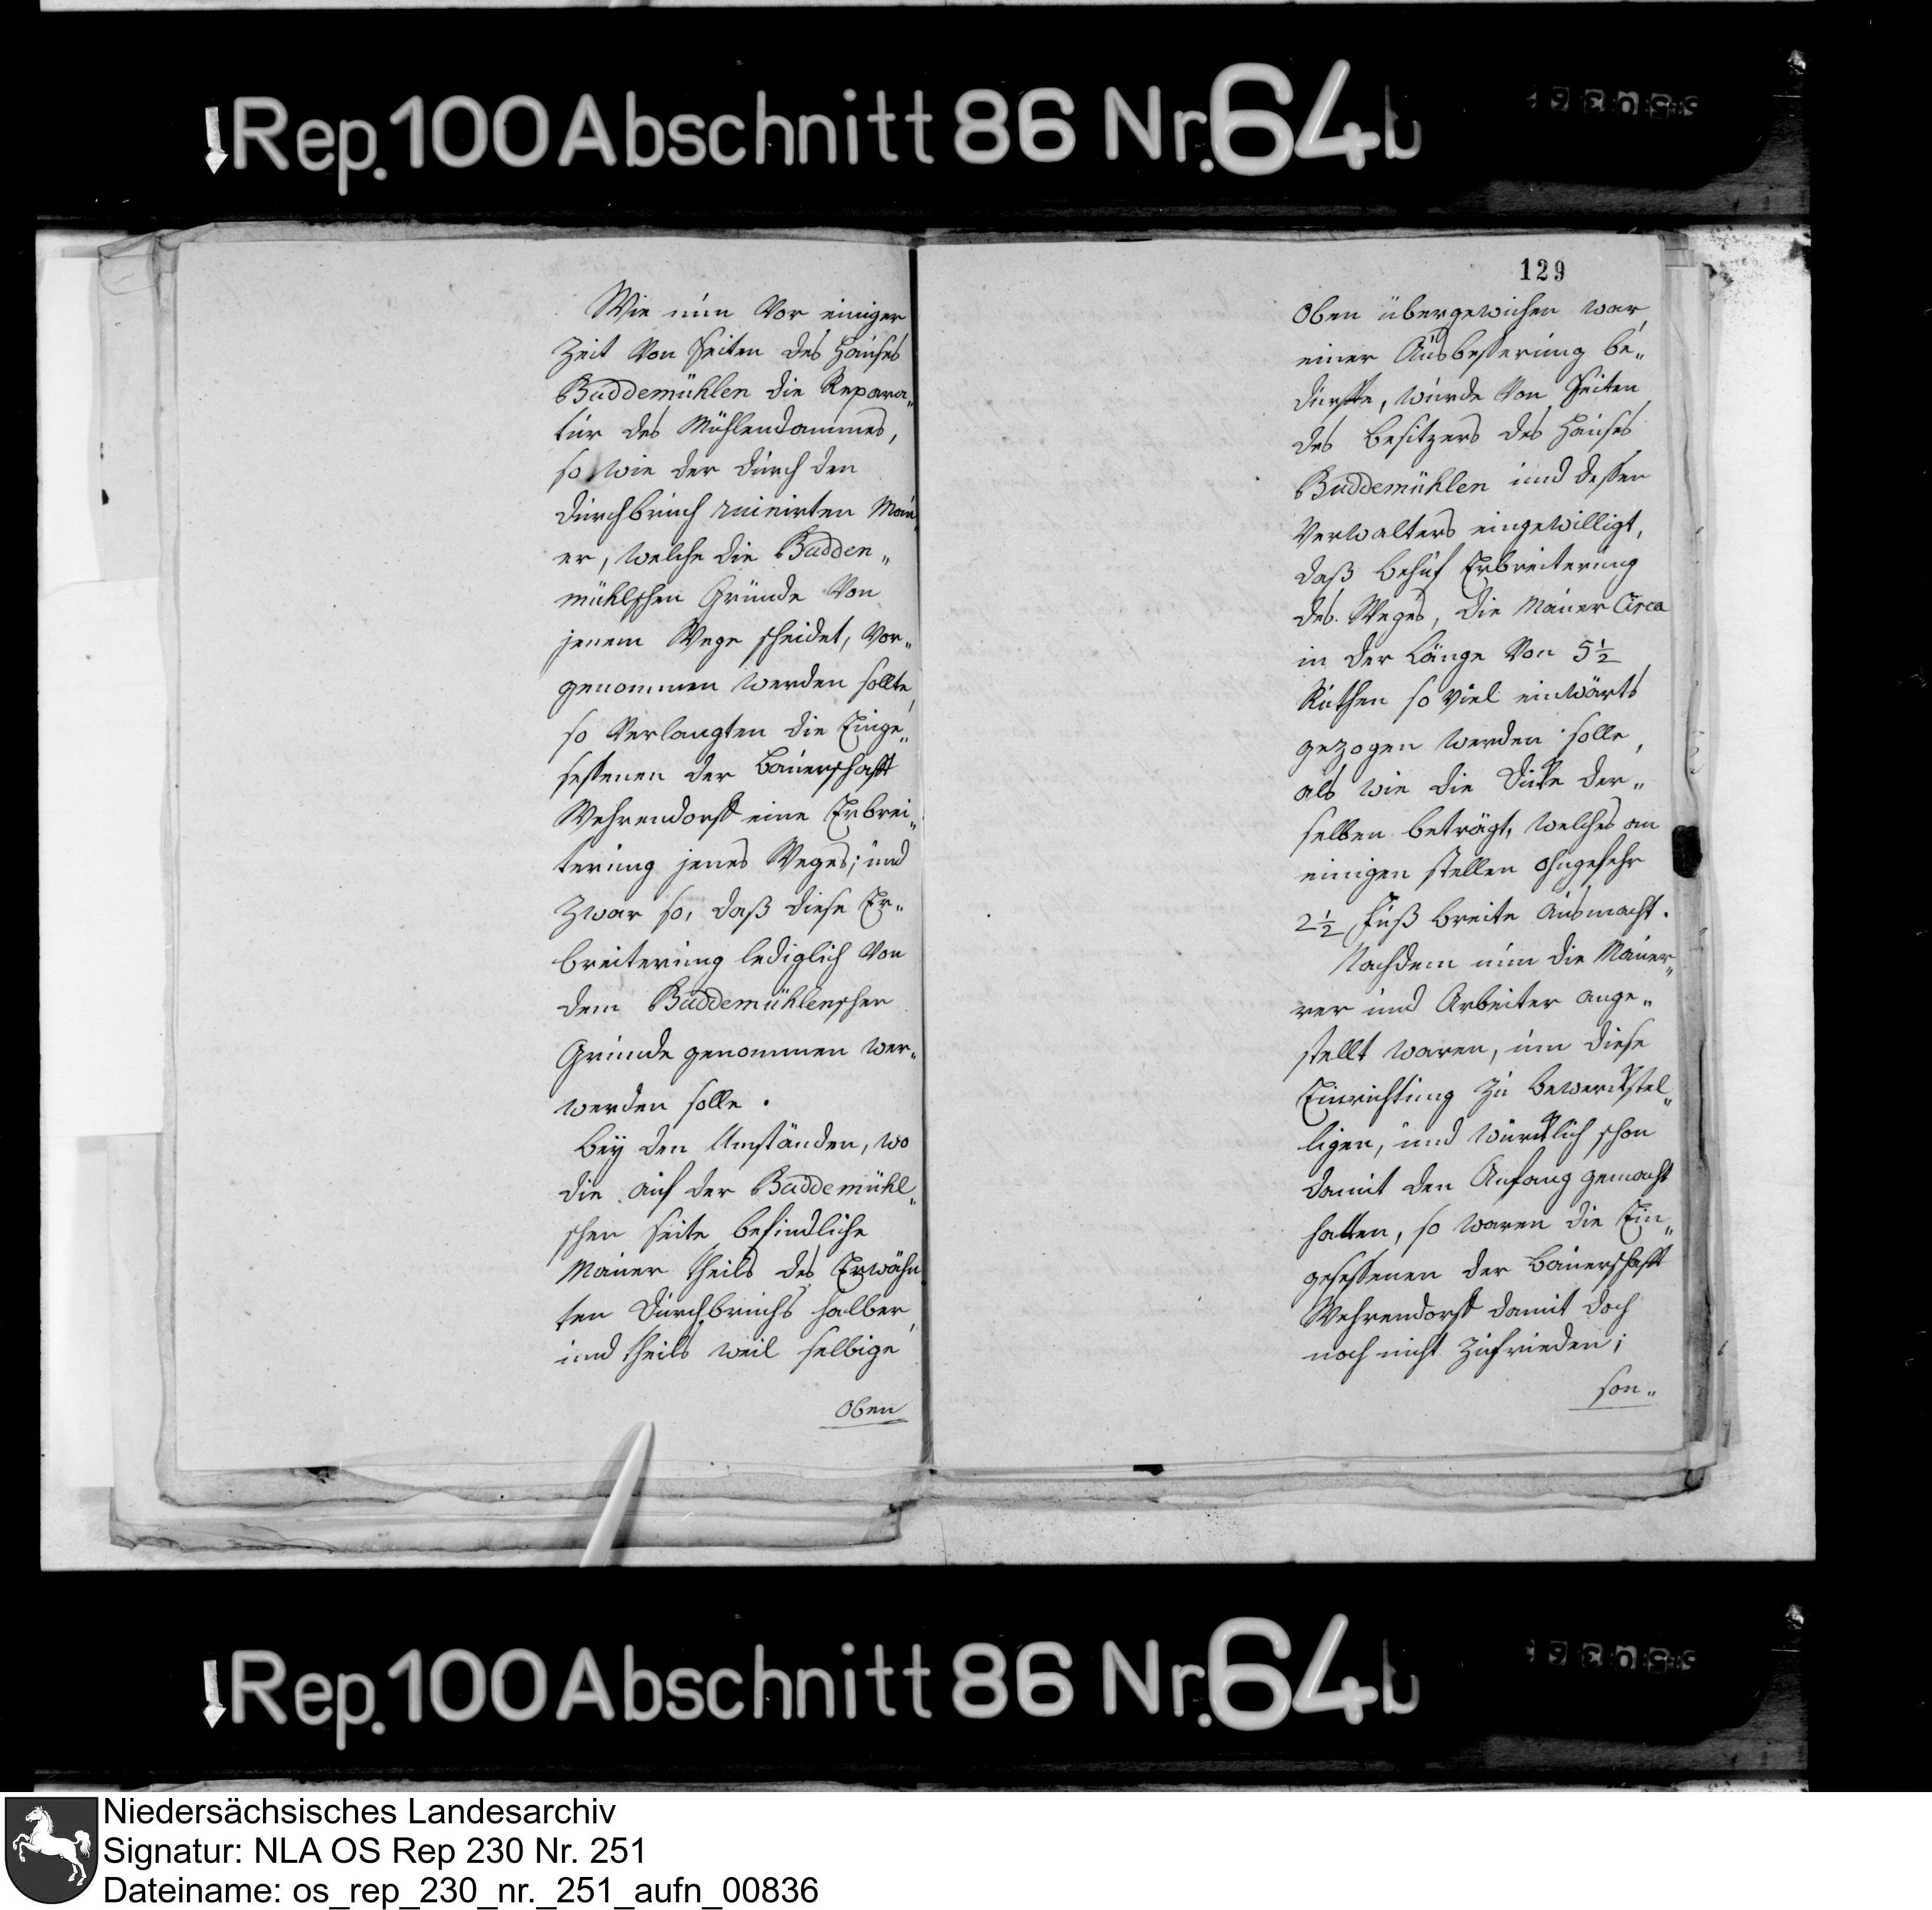 Rep. 100 Abschnitt 86 Nr. 64b
Wie nun vor einiger
Zeit von Seiten des Hauses
Buddemühlen die Repara„
tur des Mühlendammes,
so wie der durch den
Durchbruch ruinirten Mau„
er, welche die Budden„
mühlschen Gründe von
jenem Wege scheidet, vor„
genommen werden sollte,
so verlangten die Einge„
seßenen der Bauerschafft
Wehrendorff eine Erbrei„
terung jenes Weges; und
zwar so, daß diese Er„
breiterung lediglich von
dem Buddemühlenschen
Grunde genommen wer„
werden solle.
Bey den Umständen, wo
die auf der Buddemühl„
schen Seite befindliche
Mauer theils des Erwähn„
ten Durchbruchs halber,
und theils weil selbige
oben
129
oben übergewichen war,
einer Ausbeßerung be„
durfte, wurde von Seiten
des Besitzers des Hauses
Buddemühlen und deßen
Verwalters eingewilligt,
daß behuf Erbreiterung
des Weges, die Mauer Circa
in der Länge von 5½
Ruthen so viel einwärts
gezogen werden solle,
als wie die Dicke der„
selben beträgt, welches an
einigen Stellen ohngefehr
2½ Fuß breite ausmacht.
Nachdem nun die Mauer„
rer und Arbeiter ange„
stellt waren, um diese
Einrichtung zu bewerckstel„
ligen, und würcklich schon
damit den Anfang gemacht
hatten, so waren die Ein„
geseßenen der Bauerschafft
Wehrendorff damit doch
noch nicht zufrieden;
son„
Rep. 100 Abschnitt 86 Nr. 64b
Niedersächsisches Landesarchiv
Signatur: NLA OS Rep 230 Nr. 251
Dateiname: os_rep_230_nr._251_aufn_00836